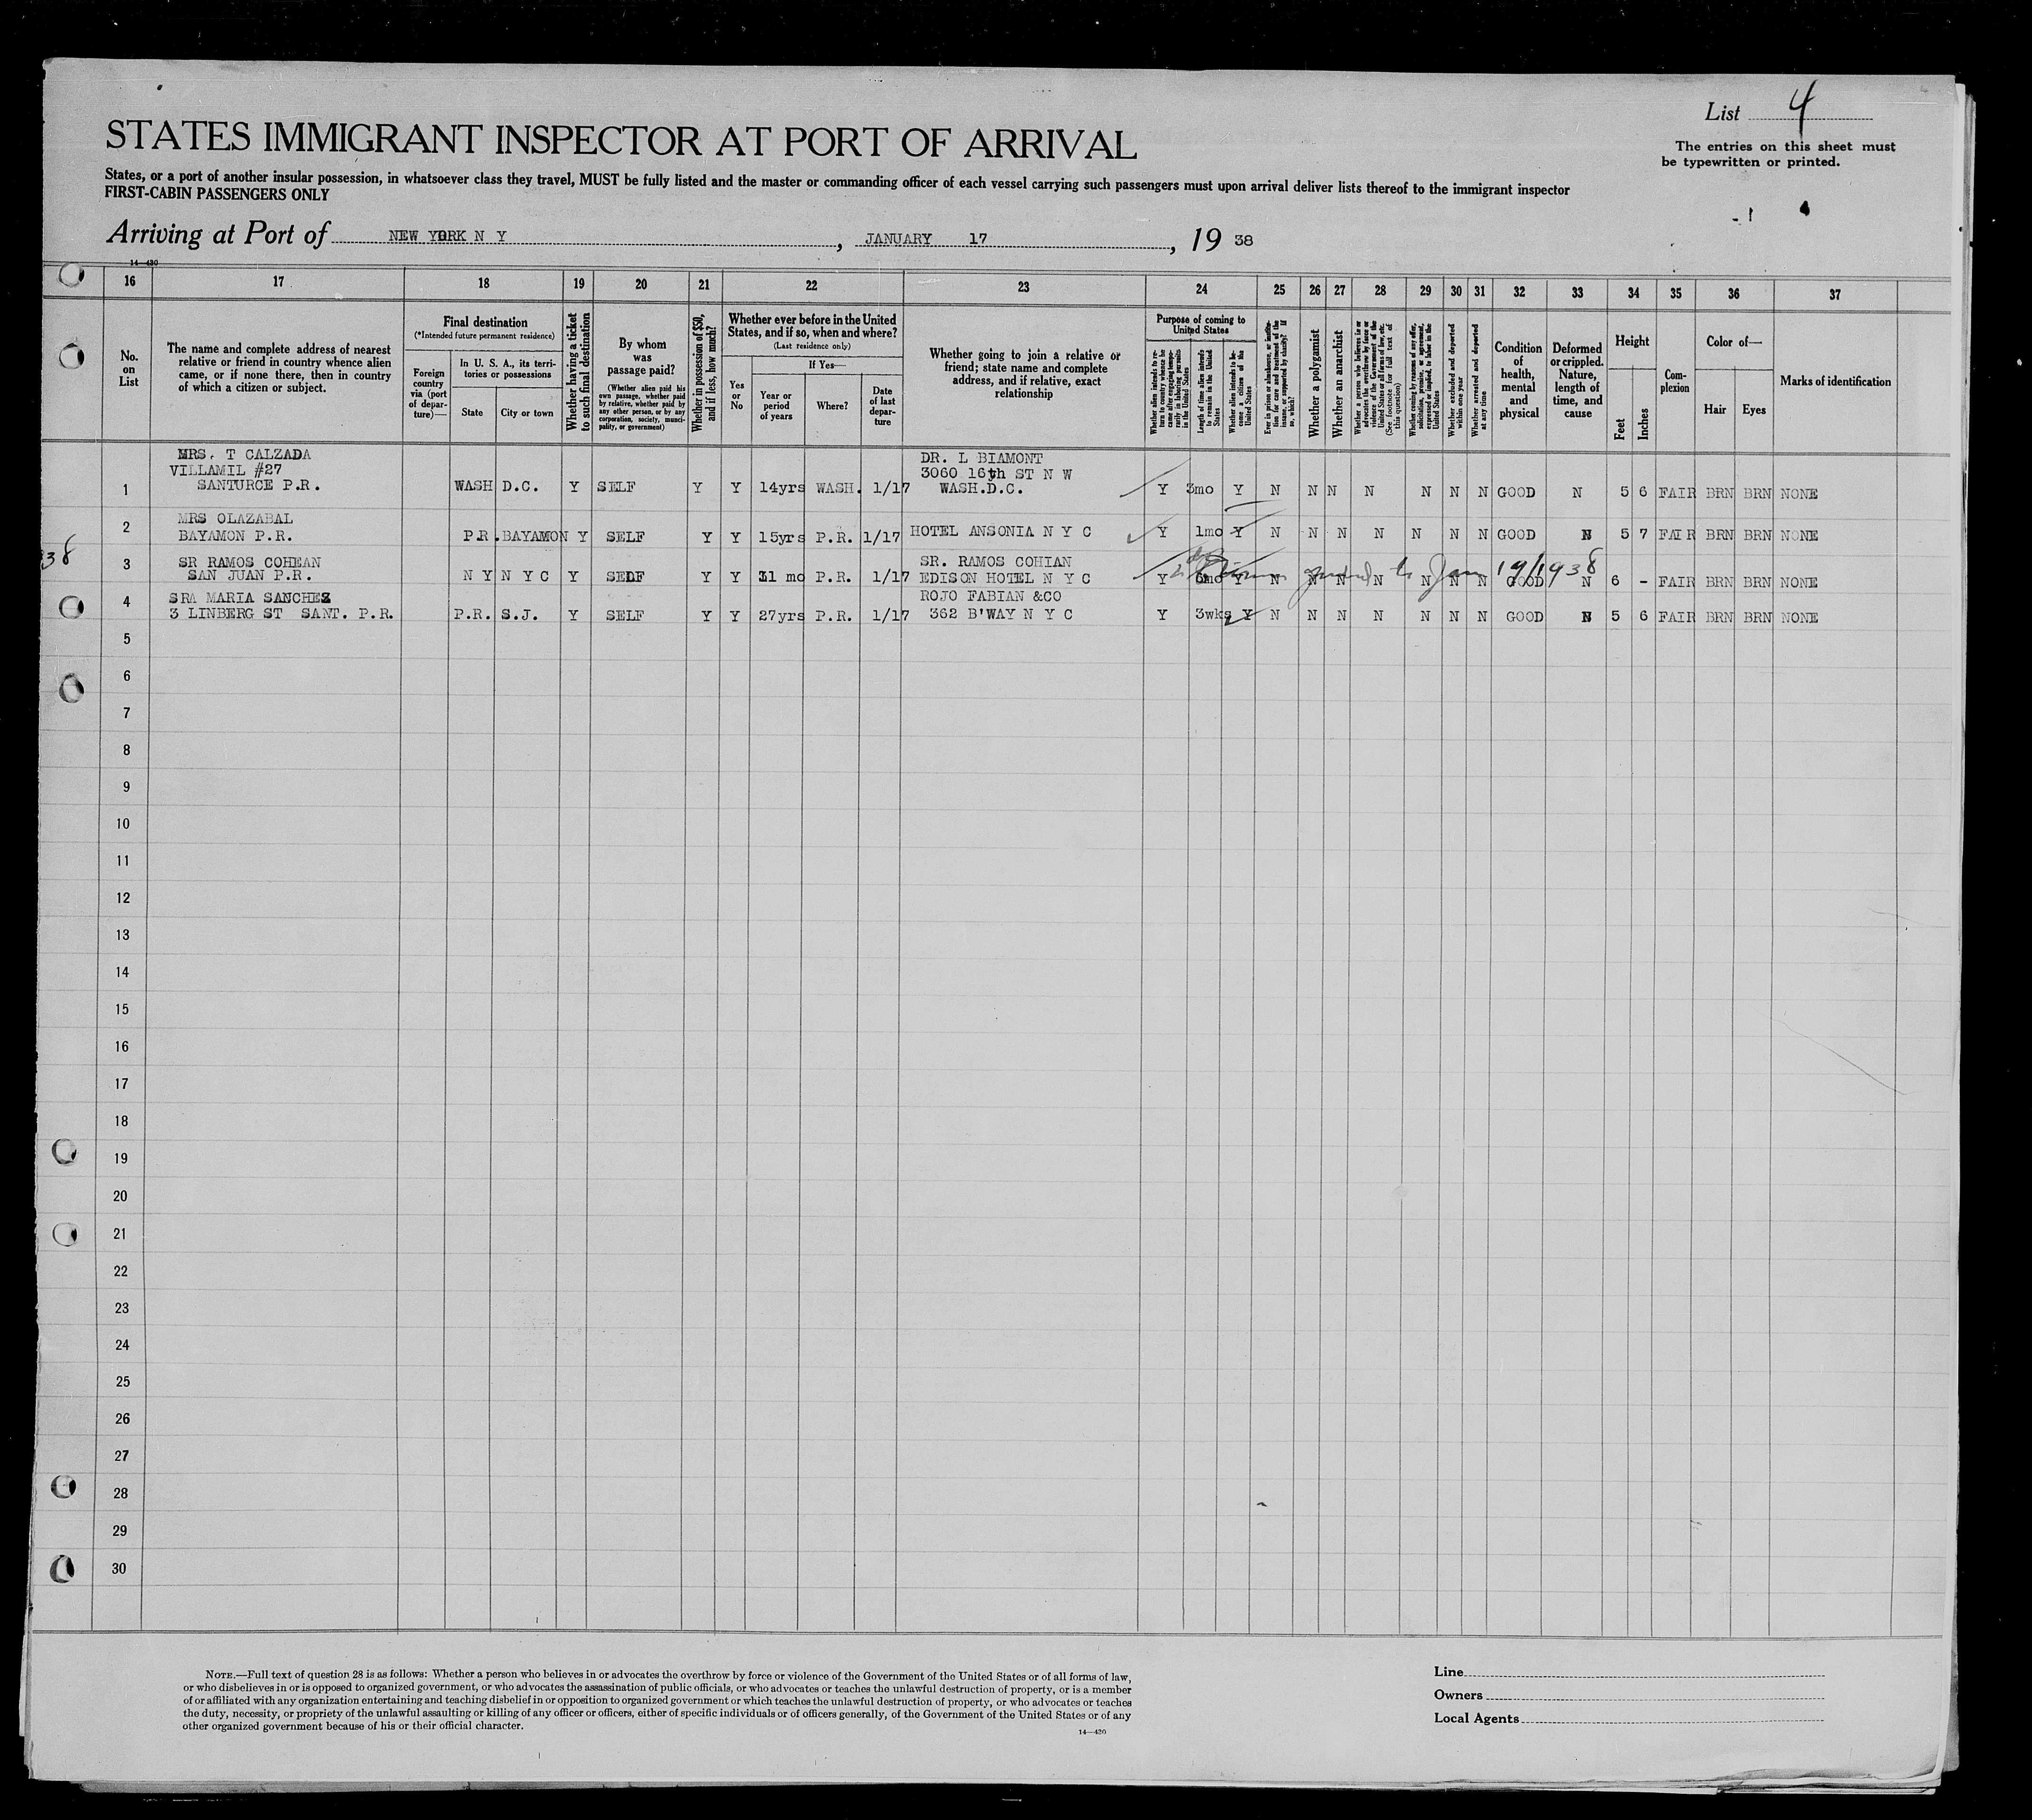 List 4
The entries on this sheet must
be typewritten or printed.
STATES IMMIGRANT INSPECTOR AT PORT OF ARRIVAL
States, or a port of another insular possession, in whatsoever class they travel, MUST be fully listed and the master or commanding officer of each vessel carrying such passengers must upon arrival deliver lists thereof to the immigrant inspector
FIRST-CABIN PASSENGERS ONLY
Arriving at Port of NEW YORK N Y, JANUARY 17, 19 38
14—430
16 17 18 19 20 21 22 23 24 25 26 27 28 29 30 31 32 33 34 35 36 37
No. on List
The name and complete address of nearest
relative or friend in country whence alien
came, or if none there, then in country
of which a citizen or subject.
Final destination
(*Intended future permanent residence)
Foreign country via (port of departure)—
In U. S. A., its territories or possessions
State
City or town
Whether having a ticket to such final destination
By whom was passage paid?
(Whether alien paid his own passage, whether paid by relative, whether paid by any other person, or by any corporation, society, municipality, or government)
Whether in possession of $50, and if less, how much?
Whether ever before in the United
States, and if so, when and where?
(Last residence only)
Yes or No
If Yes—
Year or period of years
Where?
Date of last departure
Whether going to join a relative or
friend; state name and complete
address, and if relative, exact
relationship
Purpose of coming to United States
Length of time alien intends to remain in the United States
Whether alien intends to become a citizen of the United States
Whether a polygamist
Whether an anarchist
(See footnote for full text of this question)
Whether excluded and deported within one year
Whether arrested and deported at any time
Condition of health, mental and physical
Deformed or crippled. Nature, length of time, and cause
Height
Feet
Inches
Complexion
Color of—
Hair
Eyes
Marks of identification
MRS. T CALZADA
VILLAMIL #27
DR. L BIAMONT
3060 16th ST N W
1 SANTURCE P.R. WASH D.C. Y SELF Y Y 14yrs WASH. 1/17 WASH.D.C. Y 3mo Y N N N N N N N GOOD N 5 6 FAIR BRN BRN NONE
MRS OLAZABAL
2 BAYAMON P.R. P.R. BAYAMON Y SELF Y Y 15yrs P.R. 1/17 HOTEL ANSONIA N Y C Y 1mo Y N N N N N N N GOOD N 5 7 FAIR BRN BRN NONE
38
SR RAMOS COHEAN
SR. RAMOS COHIAN
3 SAN JUAN P.R. N Y N Y C Y SELF Y Y 11 mo P.R. 1/17 EDISON HOTEL N Y C Y 6mo Y N N N N N N N GOOD N 6 - FAIR BRN BRN NONE
to Jan 19/1938
SRA MARIA SANCHEZ
ROJO FABIAN &CO
4 3 LINBERG ST SANT. P.R. P.R. S.J. Y SELF Y Y 27yrs P.R. 1/17 362 B'WAY N Y C Y 3wks Y N N N N N N N GOOD N 5 6 FAIR BRN BRN NONE
5
6
7
8
9
10
11
12
13
14
15
16
17
18
19
20
21
22
23
24
25
26
27
28
29
30
NOTE.—Full text of question 28 is as follows: Whether a person who believes in or advocates the overthrow by force or violence of the Government of the United States or of all forms of law,
or who disbelieves in or is opposed to organized government, or who advocates the assassination of public officials, or who advocates or teaches the unlawful destruction of property, or is a member
of or affiliated with any organization entertaining and teaching disbelief in or opposition to organized government or which teaches the unlawful destruction of property, or who advocates or teaches
the duty, necessity, or propriety of the unlawful assaulting or killing of any officer or officers, either of specific individuals or of officers generally, of the Government of the United States or of any
other organized government because of his or their official character.
14—430
Line
Owners
Local Agents